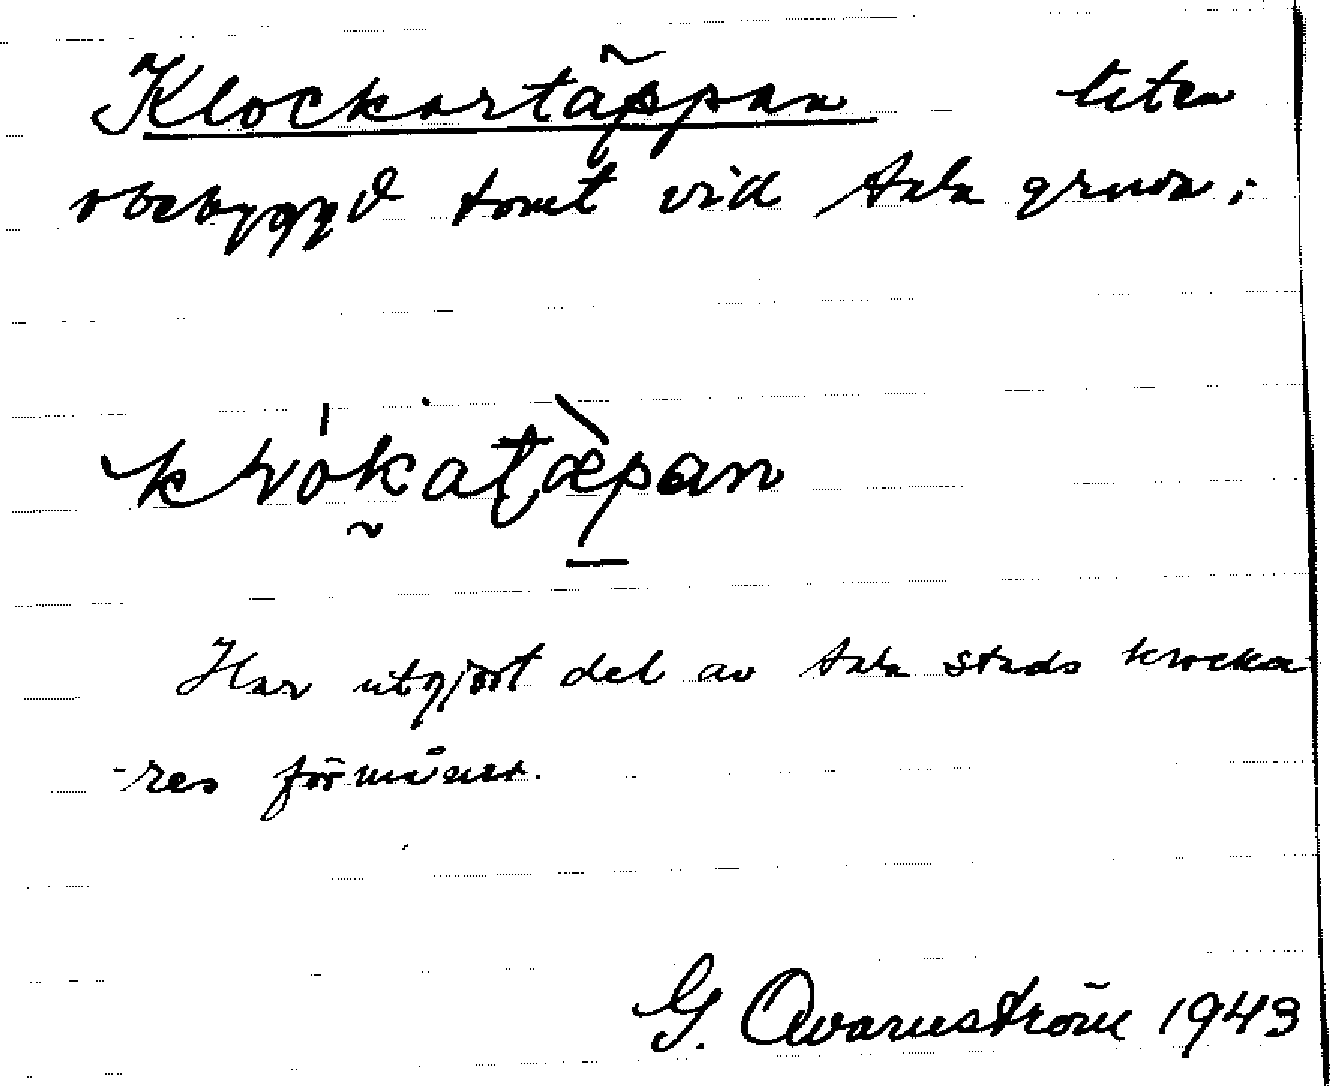 Klockartäppan liten
obebyggd tomt vid Sala gruva;
klòkatæ̀pan
Har utgjort del av Sala stads klocka
-res förmåner.
G. Qvarnström 1943